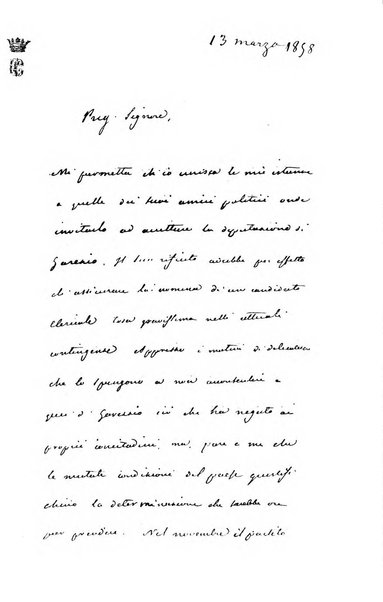 13 marzo 1858
Preg. Signore,
Mi permetta ch'io unisca le mie istanze
a quelle dei suoi amici politici onde
invitarlo ad accettare la deputazione di
Garessio. Il suo rifiuto avrebbe per effetto
di assicurare la nomina d'un candidato
clericale cosa gravissima nelle attuali
contingenze. Apprezzo i motivi di delicatezza
che lo spingono a non acconsentire a
quei di Garessio ciò che ha negato ai
proprii concittadini, ma, pare a me che
le mutate condizioni del paese giustifi
chino la determinazione che sarebbe ora
per prendere. Nel novembre il partito